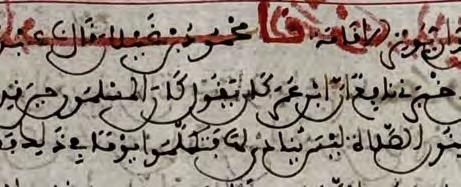 الاقامة نا محمود بن غيلان قال عبد
خبرني نافع ان ابن عمر كان يقول كان المسلمون حين
ينون الصلاة ليس ينادى لها فتكلموا يوما في ذلك